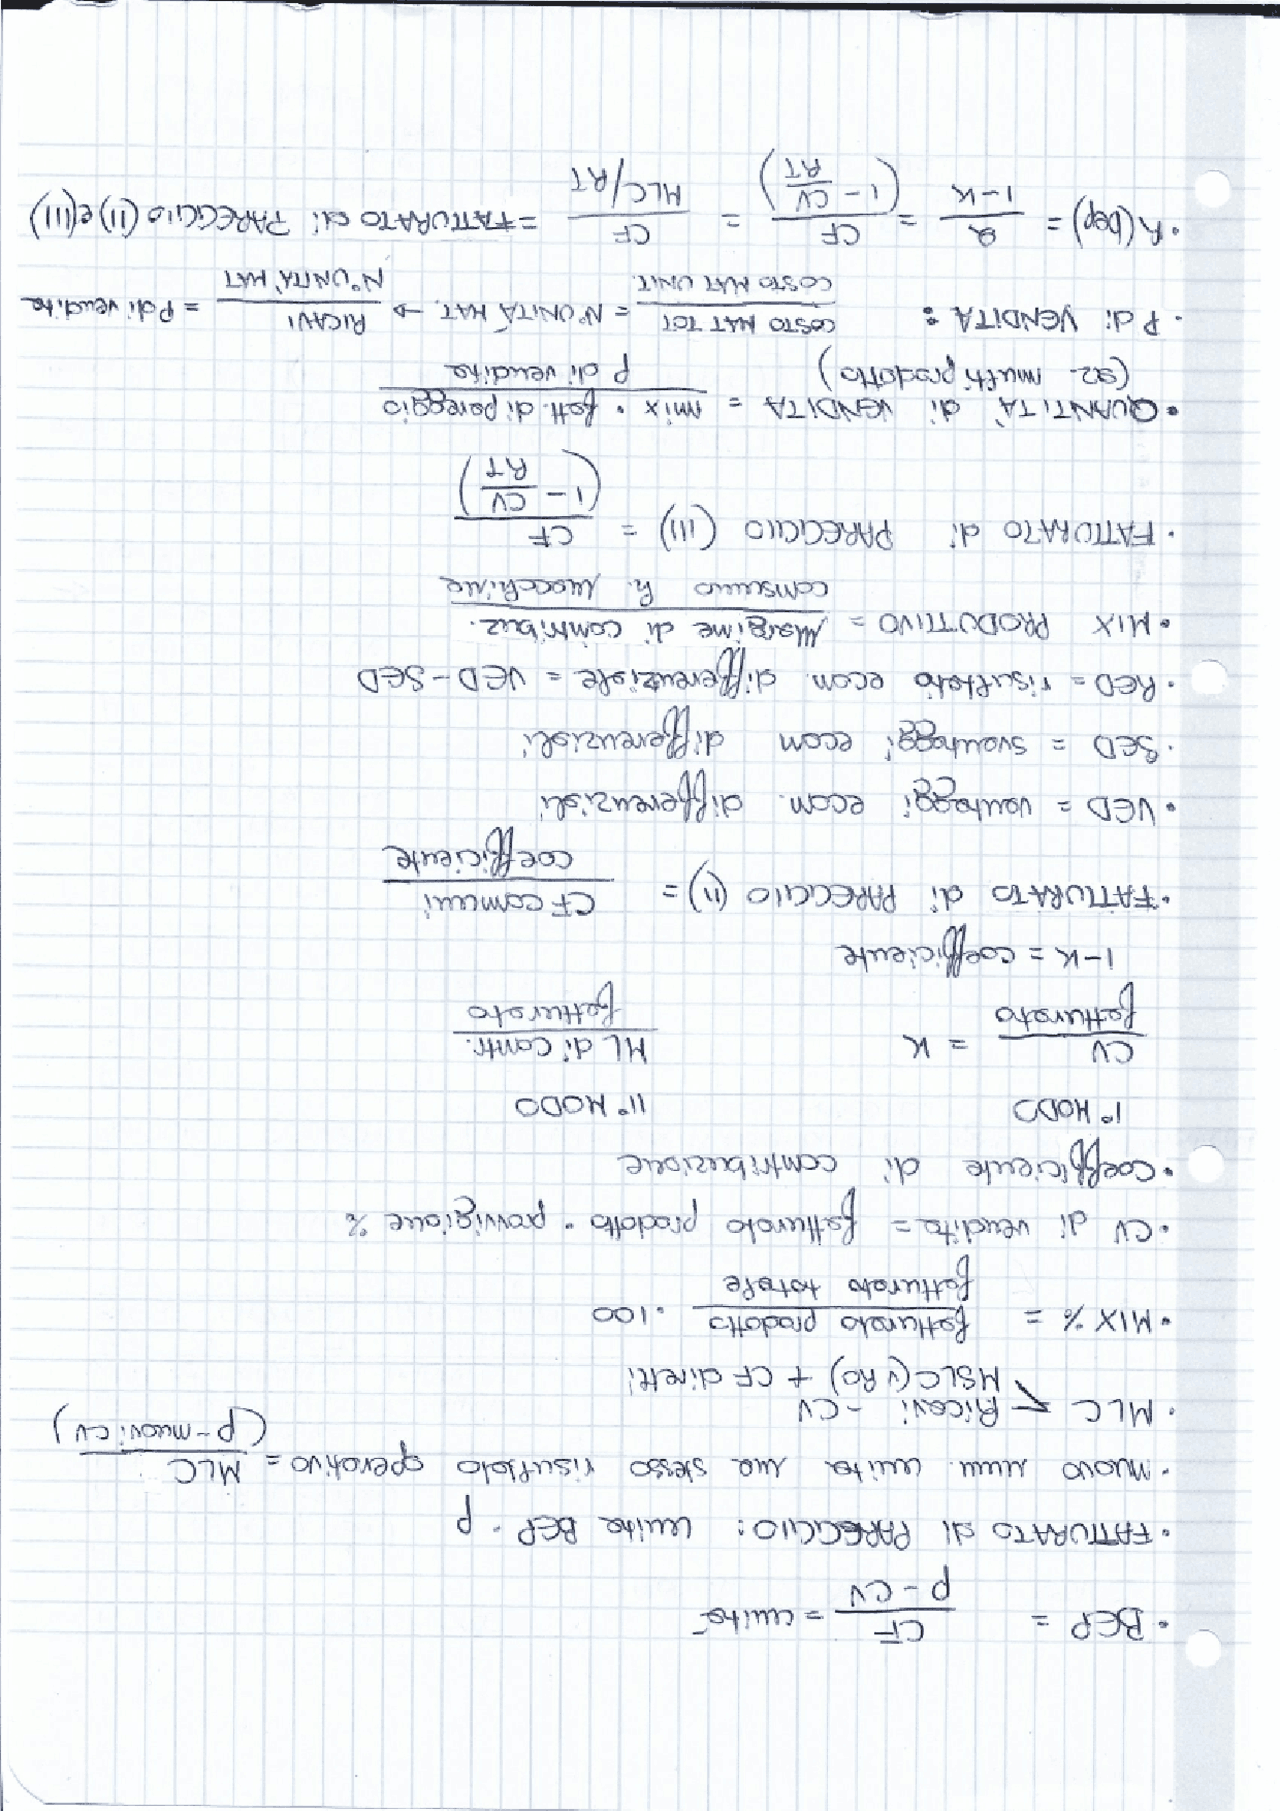 • BEP = CF / (p - CV) = unità
• FATTURATO di PAREGGIO: unità BEP · p
• nuovo num. unità ma stesso risultato operativo = MLC / (p - nuovi CV)
• MLC < Ricavi - CV
MSLC (v RO) + CF diretti
• MIX % = fatturato prodotto / fatturato totale · 100
• CV di vendita = fatturato prodotto · provvigione %
• Coefficiente di contribuzione
1° MODO 11° MODO
CV / fatturato = K ML di contr. / fatturato
1-K = coefficiente
• FATTURATO di PAREGGIO (11) = CF comuni / coefficiente
• VED = vantaggi econ. differenziali
• SED = svantaggi econ differenziali
• RED = risultato econ. differenziale = VED - SED
• MIX PRODUTTIVO = Margine di contribuz. / consumo h. macchina
• FATTURATO di PAREGGIO (111) = CF / (1 - CV/RT)
• QUANTITÀ di VENDITA = mix · fatt. di pareggio / p di vendita
(az. multi prodotto)
• P di VENDITA: COSTO MAT TOT / COSTO MAT UNIT. = N° UNITÀ MAT. → RICAVI / N° UNITÀ MAT = P di vendita
• R (bep) = a / 1-K = CF / (1 - CV/RT) = CF / MLC/RT = FATTURATO di PAREGGIO (11) e (111)